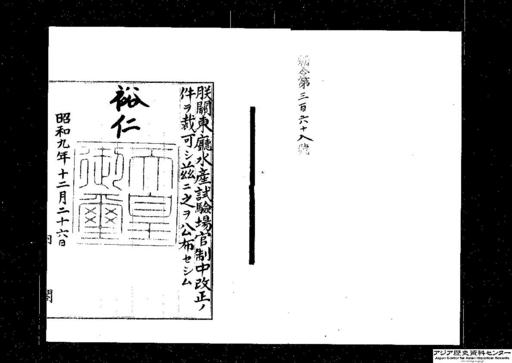 勅令第三百六十八號
朕關東廳水產試驗場官制中改正ノ
件ヲ裁可シ茲ニ之ヲ公布セシム
裕仁
天皇御璽
昭和九年十二月二十六日
内閣
アジア歴史資料センター
Japan Center for Asian Historical Records